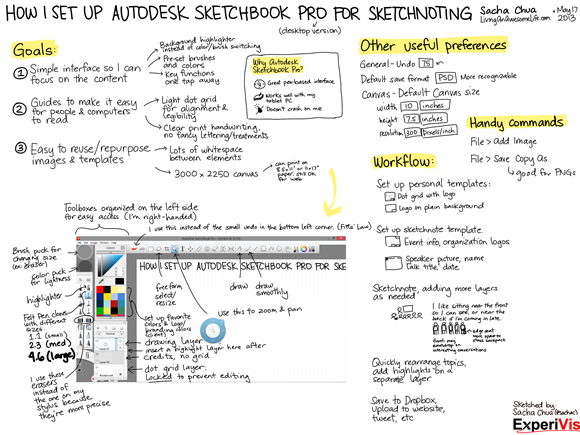 HOW I SET UP AUTODESK SKETCHBOOK PRO FOR SKETCHNOTING
(desktop version)
Sacha Chua
LivingAnAwesomeLife.com
May 17
2013
Goals:
① Simple interface so I can
focus on the content
Background highlighter
instead of color/brush switching
Pre-set brushes
and colors
Key functions
one tap away
② Guides to make it easy
for people & computers
to read
Light dot grid
for alignment &
legibility
Clear print handwriting,
no fancy lettering/treatments
③ Easy to reuse/repurpose
images & templates
Lots of whitespace
between elements
3000 x 2250 canvas
can print on
8.5"x11" or 11x17"
paper, still OK
for web
Why Autodesk
Sketchbook Pro?
Great pen-based interface
Works well with my
tablet PC
Doesn't crash on me
Toolboxes organized on the left side
for easy access (I'm right-handed)
I use this instead of the small undo in the bottom left corner. (Fitts' Law)
Brush puck for
changing size
(on eraser)
color puck
for lightness
highlighter
Felt Pen clones
with different
sizes:
1.1 (small)
2.3 (med)
4.6 (large)
I use these
erasers
instead of
the one on my
stylus because
they're more precise
HOW I SET UP AUTODESK SKETCHBOOK PRO FOR SKE
free form
select/
resize
draw
draw
smoothly
use this to zoom & pan
set up favorite
colors & logo/
branding colors
(client)
drawing layer
insert a highlight layer here after
credits, no grid
dot grid layer.
Locked to prevent editing
Other useful preferences
General - Undo 75
Default save format PSD More recognizable
Canvas - Default Canvas size
width 10 inches
height 7.5 inches
resolution 300 pixels/inch
Handy commands
File > Add Image
File > Save Copy As
good for PNGs
Workflow:
Set up personal templates:
Dot grid with logo
Logo on plain background
Set up sketchnote template.
Event info, organization logos
Speaker picture, name
Talk title, date
Sketchnote, adding more layers
as needed
I like sitting near the front
so I can see, or near the
back if I'm coming in late.
interesting conversations
Quickly rearrange topics,
add highlights on a
separate layer
Save to Dropbox,
upload to website,
tweet, etc.
Sketched by:
Sacha Chua (@sachac)
ExperiVis